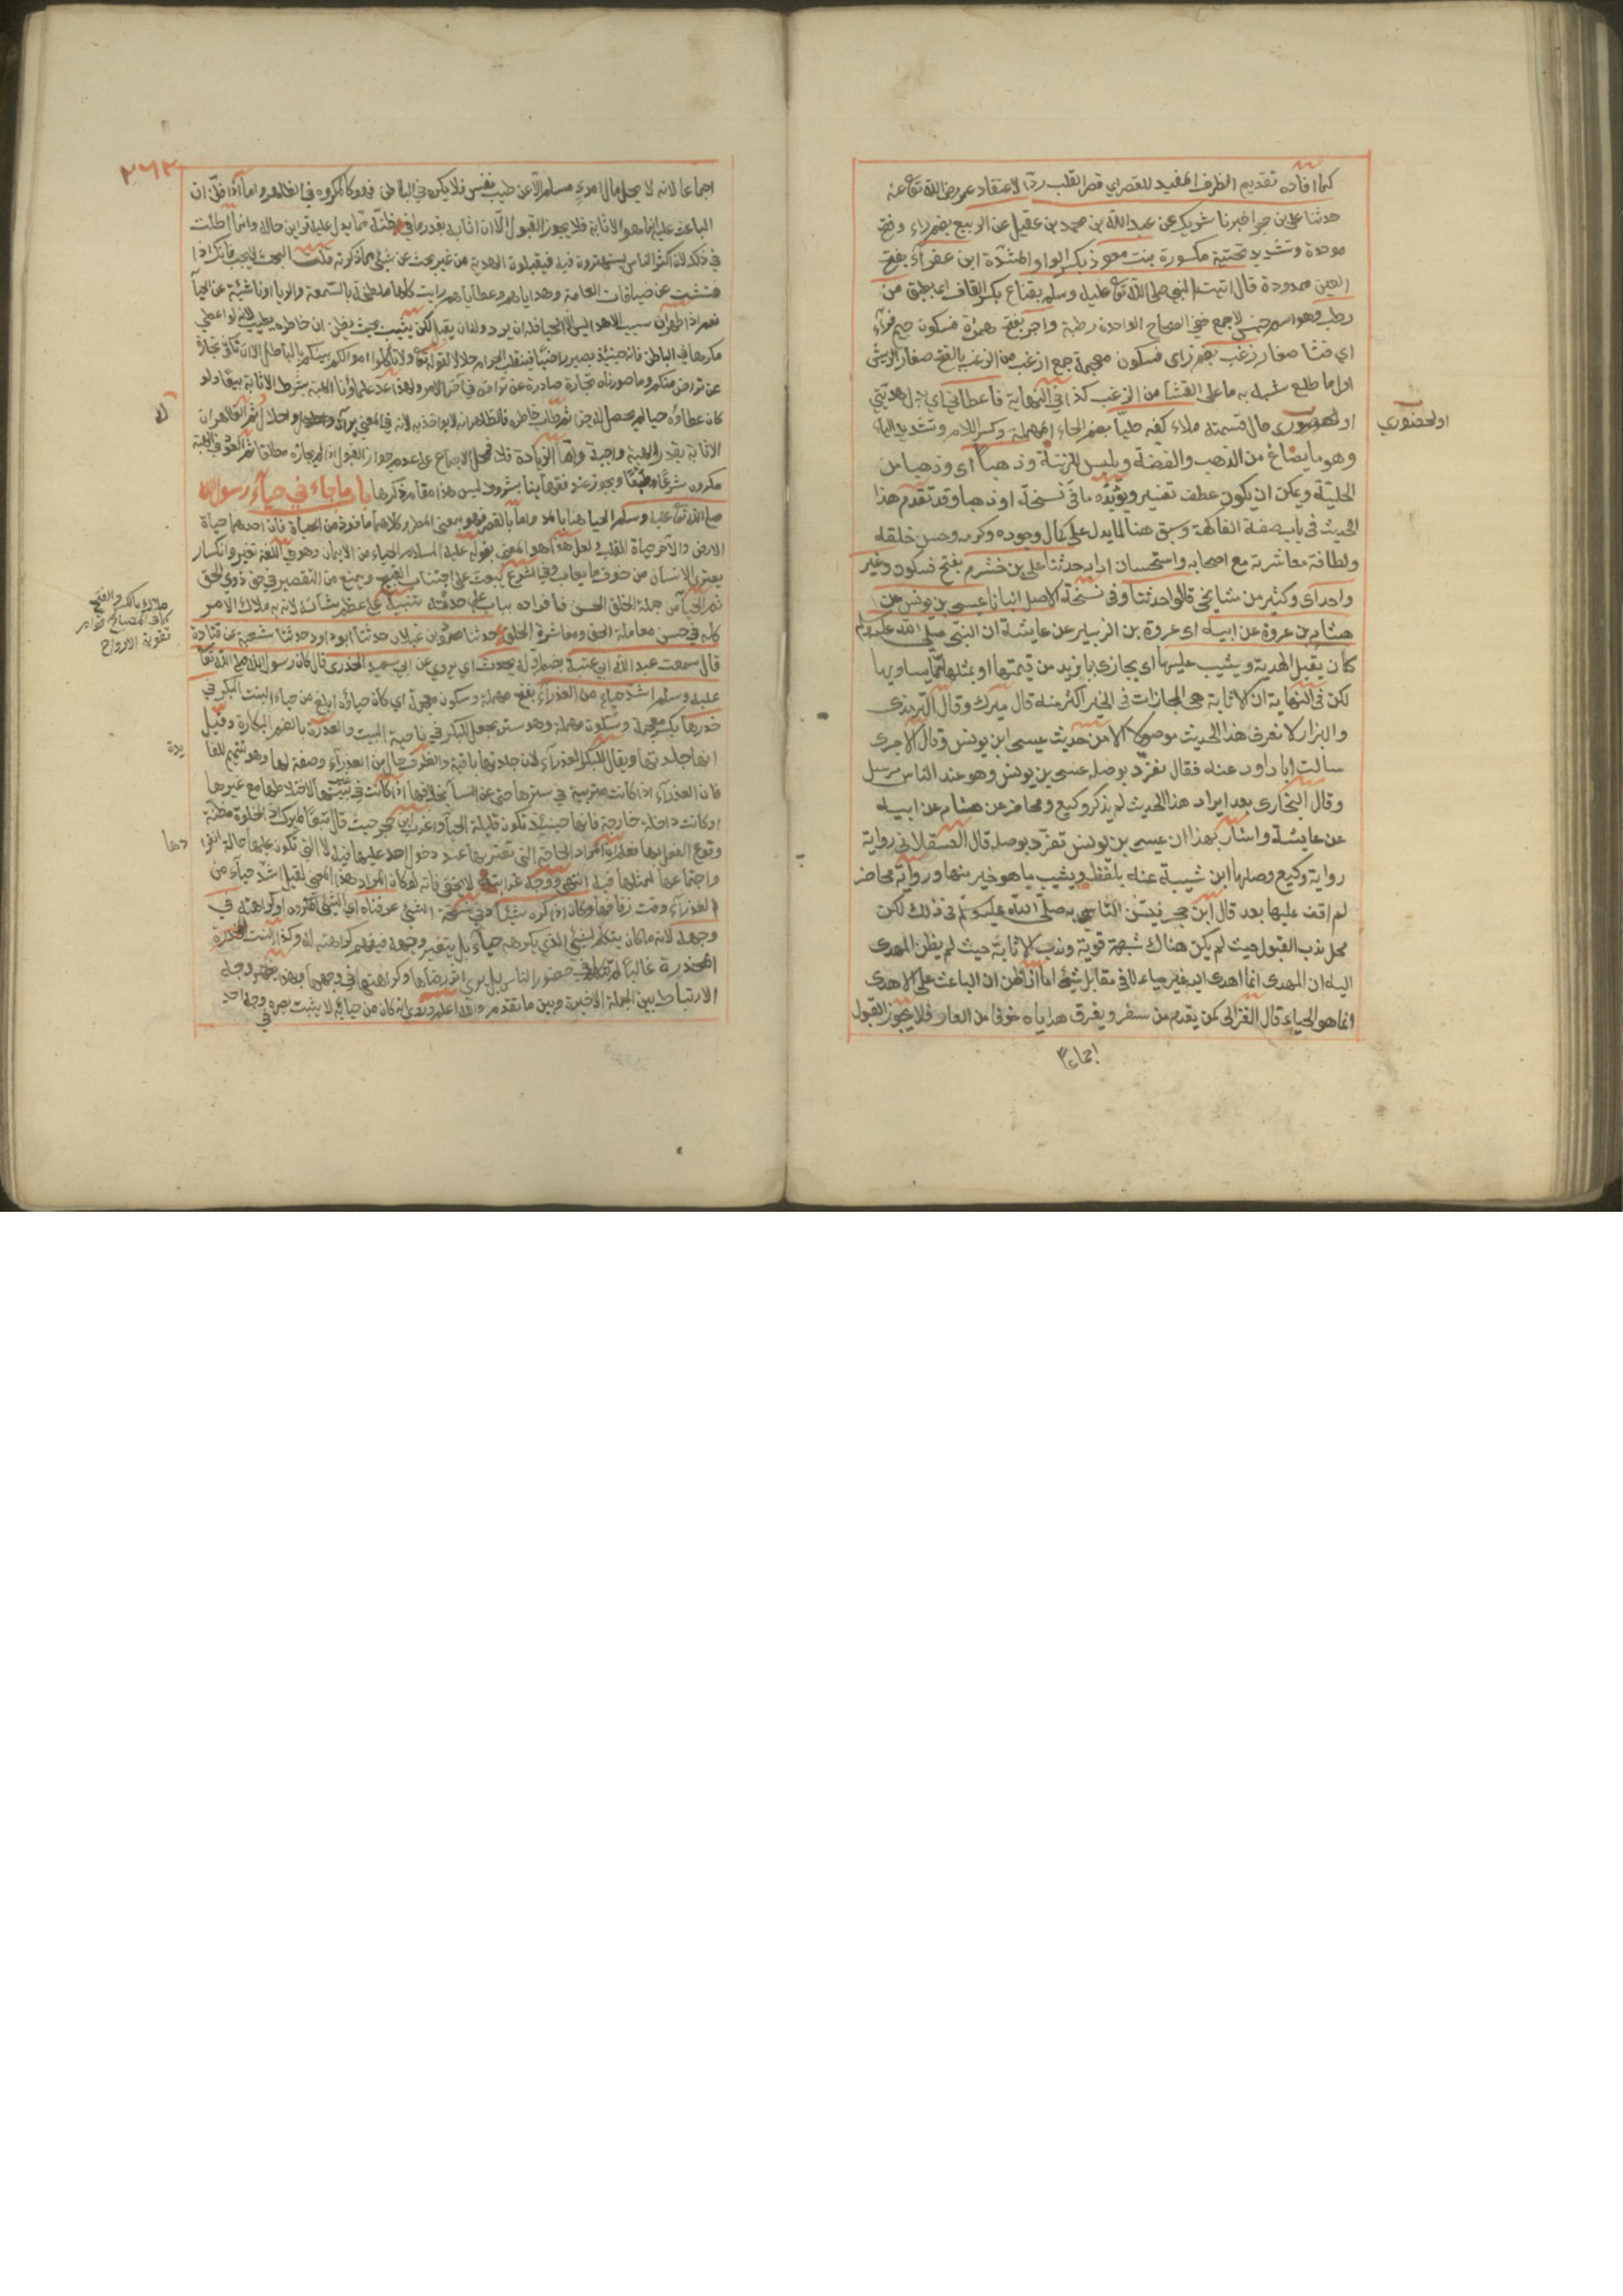 كما افاده تقديم الظرف المفيد للقصر اي قصر القلب ردّا لاعتقاد عمر رضي الله تع عنه
حدثنا علي بن حجر اخبرنا شريك عن عبد الله بن محمد بن عقيل عن الربيع بضم راء وفتح
موحدة وتشديد تحتية مكسورة بنت معوذ بكسر الواو المشدّدة ابن عفرآء بفتح
العين ممدودة قال اتيت النبي صلى الله تع عليه وسلم بقناع بكسر القاف اي بطبق من
رطب وهو اسم جنس لا جمع ففي الصحاح الواحدة رطبة واجر بفتح همزة فسكون جيم فراء
اي قثا صغار زغب بضم زاى فسكون معجمة جمع ازغب من الزغب بالفتح صغار الريش
اول ما طلع شبه به ما على القثآ من الزغب كذا في النهاية فاعطاني اي لاجل هديتي
او لحضوري
او لحضوري حال قسمته ملاء كفه حليا بضم الحاء المهملة وكسر اللام وتشديد الياء
وهو ما يصاغ من الذهب والفضة ويلبس للزينة وذهباً اى وذهبا من
الحليّة ويمكن ان يكون عطف تفسير ويؤيّده ما في نسخة او ذهبا وقد تقدم هذا
الحديث في باب صفة الفاكهة وسبق هنا لما يدل على كمال وجوده وكرمه وحسن خلقه
ولطافة معاشرته مع اصحابه واستحسان ادابه حدثنا علي بن خشرم بفتح فسكون وغير
واحد اى وكثير من مشايخي قالوا حدثنا وفي نسخة الاصل انبانا عيسى بن يونس عن
هشام بن عروة عن ابيه اى عروة بن الزبير عن عايشة ان النبي صلى الله عليه وسلم
كان يقبل الهدية ويثيب عليها اى يجازى بما يزيد من قيمتها او بمثلها مما يساويها
لكن في النهاية ان الاثابة هى المجازات في الخير اكثر منه قال ميرك وقال الترمذى
والبزار لا نعرف هذا الحديث موصولا الا من حديث عيسى ابن يونس وقال الآجرى
سالت ابا داود عنه فقال تفرّد بوصله عيسى بن يونس وهو عند الناس مرسل
وقال البخارى بعد ايراد هذا الحديث لم يذكر وكيع ومحاضر عن هشام عن ابيه
عن عايشة واشار بهذا ان عيسى بن يونس تفرّد بوصله قال العسقلاني رواية
رواية وكيع وصلها ابن شيبة عنه بلفظ ويثيب ما هو خير منها ورواية محاضر
لم اقف عليها بعد قال ابن حجر فيسّن التاسي به صلى الله عليه وسلم في ذلك لكن
محل ندب القبول حيث لم يكن هناك شبهة قوية وندب الاثابة حيث لم يظن المهدى
اليه ان المهدى انما اهدى اليه بغير حياء لا في مقابل شيئ اما اذا ظن ان الباعث على الاهدى
انما هو الحياء قال الغزالى كمن يقدم من سفر ويفرق هداياه خوفا من العار فلا يجوز القبول
اجماعا
٢٦٣
اجماعا لانه لا يحل مال امرء مسلم الا عن طيب نفس فلا يكره في الباطن فهو كالمكروه في الظاهر واما اذا ظنّ ان
الباعث عليه انما هو الاثابة فلا يجوز القبول الّا ان اثابه بقدر ما في ظنّه مما يدل عليه قراين حاله وانما اطلت
في ذلك لان اكثر الناس يستهترون فيه فيقبلون الهدية من غير بحث عن شيئ مما ذكرته قلت البحث لا يجب فانك اذا
فتشت عن ضيافات العامة وهداياهم وعطاياهم رايت كلها ملطخة بالسّمعة والريا او ناشية عن الحيآ
نعم اذا ظهر ان سبب الاهدا ليس الّا الحيا فله ان يرد وله ان يقبل لكن يثيب بحيث يظن ان خاطره يطيب لانه لو اعطي
مكرها في الباطن فانه حينئذ يصير راضيا فينقلب الحرام حلالا لقوله تعا ولا تأكلوا اموالكم بينكم بالباطل الا ان تكون تجارة
عن تراض منكم وما صورناه تجارة صادرة عن تراض في آخر الامر ولهذا عدّ علماؤنا الهبة بشرط الاثابة بيعا ولو
كان عطاؤه حيا لم يحصل له جزا ثم طاب خاطره فالظاهر انه لا يواخذ به لانه في المعنى ابراء واحلال ثم الظاهر ان
الاثابة بقدر الهبة واجبة واما الزيادة فلا فمحل الاجماع على عدم جواز القبول اذا لم يجازه مطلقا ثم العوض في الهبة
مكروه شرعًا وطبعًا ويجوز عند فقهاينا بشروط ليس هذا مقام ذكرها باب ما جاء في حيآء رسول الله
صلى الله تع عليه وسلم الحيا هنا بالمد واما بالقصر فهو بمعنى المطر وكلاهما ماخوذ من الحياة فان احدهما حياة
الارض والآخر حياة القلب ولعل هذا هو المعنى بقوله عليه السلام الحياء من الايمان وهو في اللغة تغير وانكسار
يعتري الانسان من خوف ما يعاب وفي الشرع يبعث على اجتناب القبيح ويمنع من التقصير في حق ذوي الحق
ثم الحيآ من جملة الخلق الحسن فافراده بباب على حدته تنبيه على عظم شانه لانه به ملاك الامر
ملاك بالكسر والفتح
كذا في المصباح قوام
تقوية الارواح
كله في حسن معاملة الحق ومعاشرة الخلق حدثنا محمود بن غيلان حدثنا ابو داود حدثنا شعبة عن قتادة
قال سمعت عبد الله ابي عتبة بضم اوله يحدث اي يروي عن ابي سعيد الخدرى قال كان رسول الله صلى الله تعا
عليه وسلم اشدّ حياء من العذرآء بفتح مهملة وسكون معجمة اي كان حياؤه ابلغ من حياء البنت البكر في
خدرها بكسر معجمة وسكون مهملة وهو ستر يجعل للبكر في ناحية البيت والعذرة بالضم البكارة وقيل
انها جلدتها ويقال للبكر العذرآء لان جلدتها باقية والظرف حال من العذرآء وصفة لها وهو تتميم للفا
يدة
فان العذرآء اذا كانت متربية في سترها حتى عن النسا بخلافها اذا كانت في بيتها لاختلاطها مع غيرها
او كانت داخلة خارجة فانها حينئذ تكون قليلة الحيآ واغرب ابن حجر حيث قال تبعا لميرك ان الخلوة مظنة
وقوع الفعل بها فعلم ان المراد الحالة التي تعتريها عند دخول احد عليها فيه لا التي تكون عليها حالة انفرا
دها
واجتماعها لمثلها فيه انتهى ووجه غرابته لا يخفى فانه لو كان المراد هذا المعنى لقيل اشدّ حياء من
العذرآء وقت زفافها وكان اذا كره شيئا وفي نسخة الشيئ عرفناه اي الشيئ المكروه او كراهته في
وجهه لانه ما كان يتكلم بشيئ الذي يكرهه حيآء بل يتغير وجهه فيفهم كراهته له وكذا البنت
المخدرة غالبا لم تتكلم في حضور الناس بل يرى اثر رضاها وكراهتها في وجهها وبهذا يظهر وجه
الارتباط بين الجملة الاخيرة وبين ما تقدم والله اعلم وروي انه كان من حيائه لا يثبت بصره في وجه احد